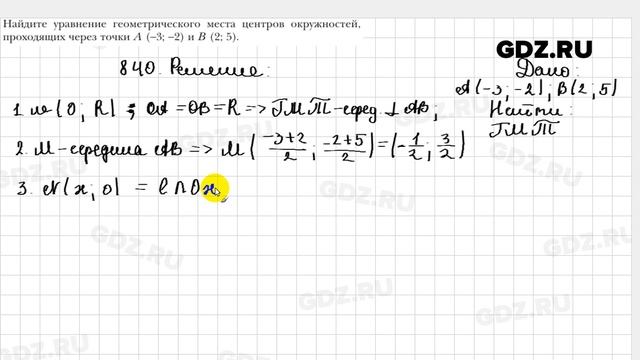 Найдите уравнение геометрического места центров окружностей,
проходящих через точки A (–3; –2) и B (2; 5).
GDZ.RU
840. Решение:
Дано:
A(-3; -2); B(2; 5)
1. w(O; R); OA = OB = R => ГМТ-серед. ⊥ AB;
Найти:
ГМТ
2. M-середина AB => M(-3+2/2; -2+5/2) = (-1/2; 3/2)
3. N(x; 0) = l ∩ Ox,
GDZ.RU
GDZ.RU
GDZ.RU
GDZ.RU
GDZ.RU
GDZ.RU